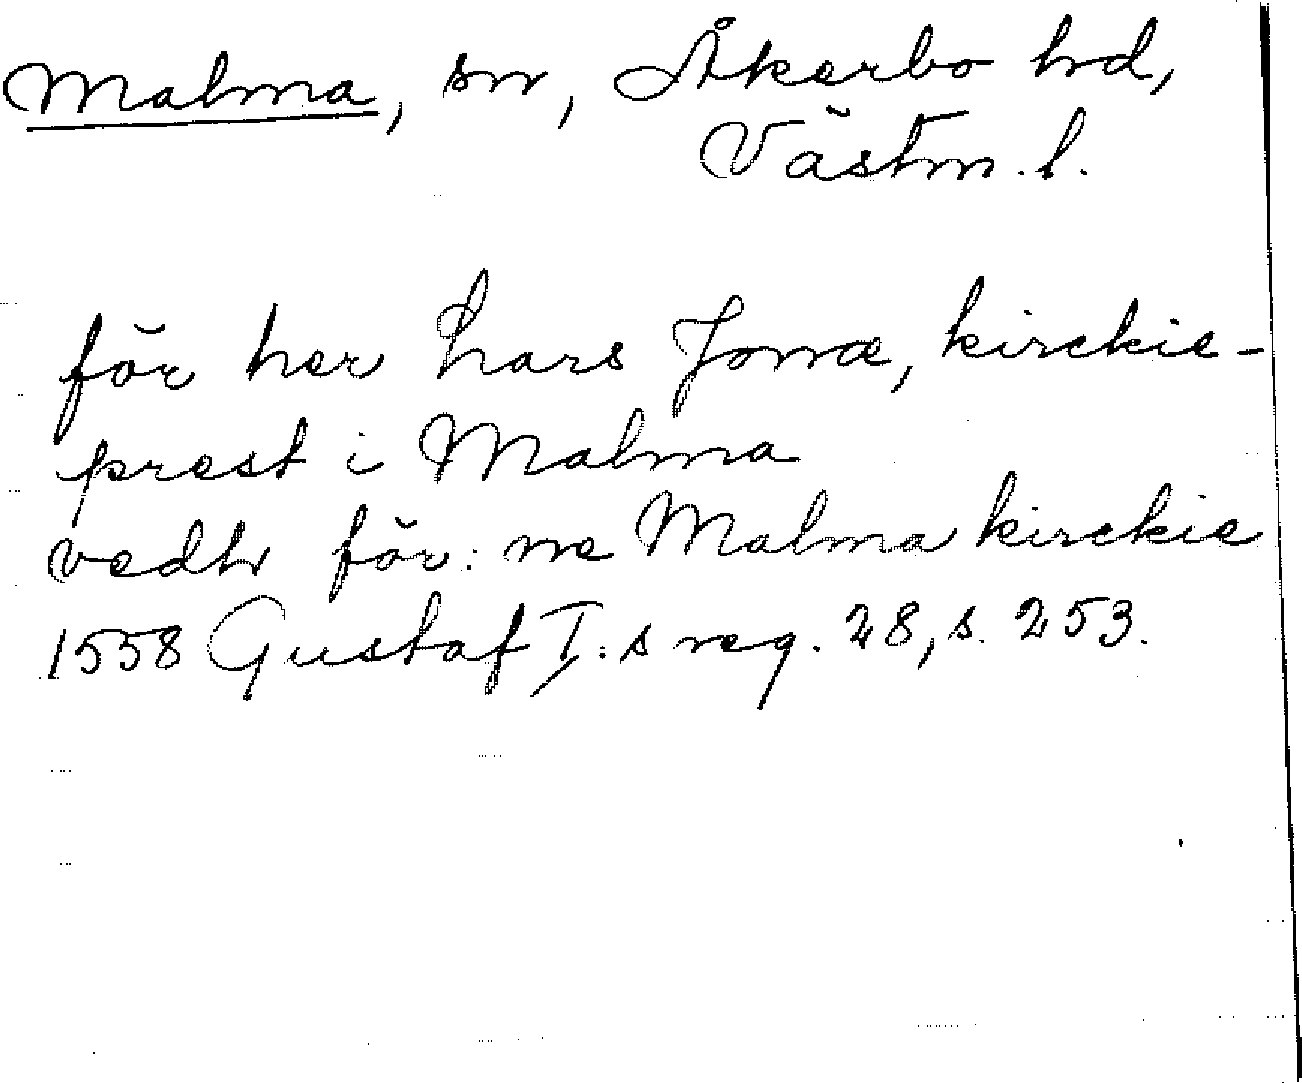 Malma, sn, Åkerbo hd,
Västm. l.
för her Lars Jonæ, kirckie-
prest i Malma
vedh för: ne Malma kirckie
1558 Gustaf I: s reg. 28, s. 253.